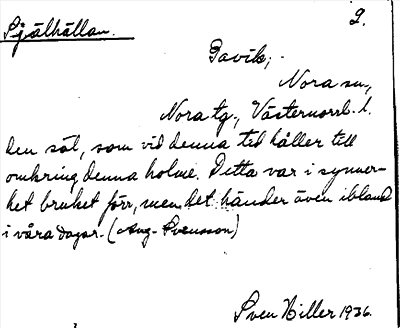 2.
Själhällan.
Gavik,
Nora sn,
Nora tg., Västernorrl. l.
den säl, som vid denna tid håller till
omkring denna holme. Detta var i synner-
het bruket förr, men det händer även ibland
i våra dagar. (Aug. Svensson)
Sven Hiller 1936.